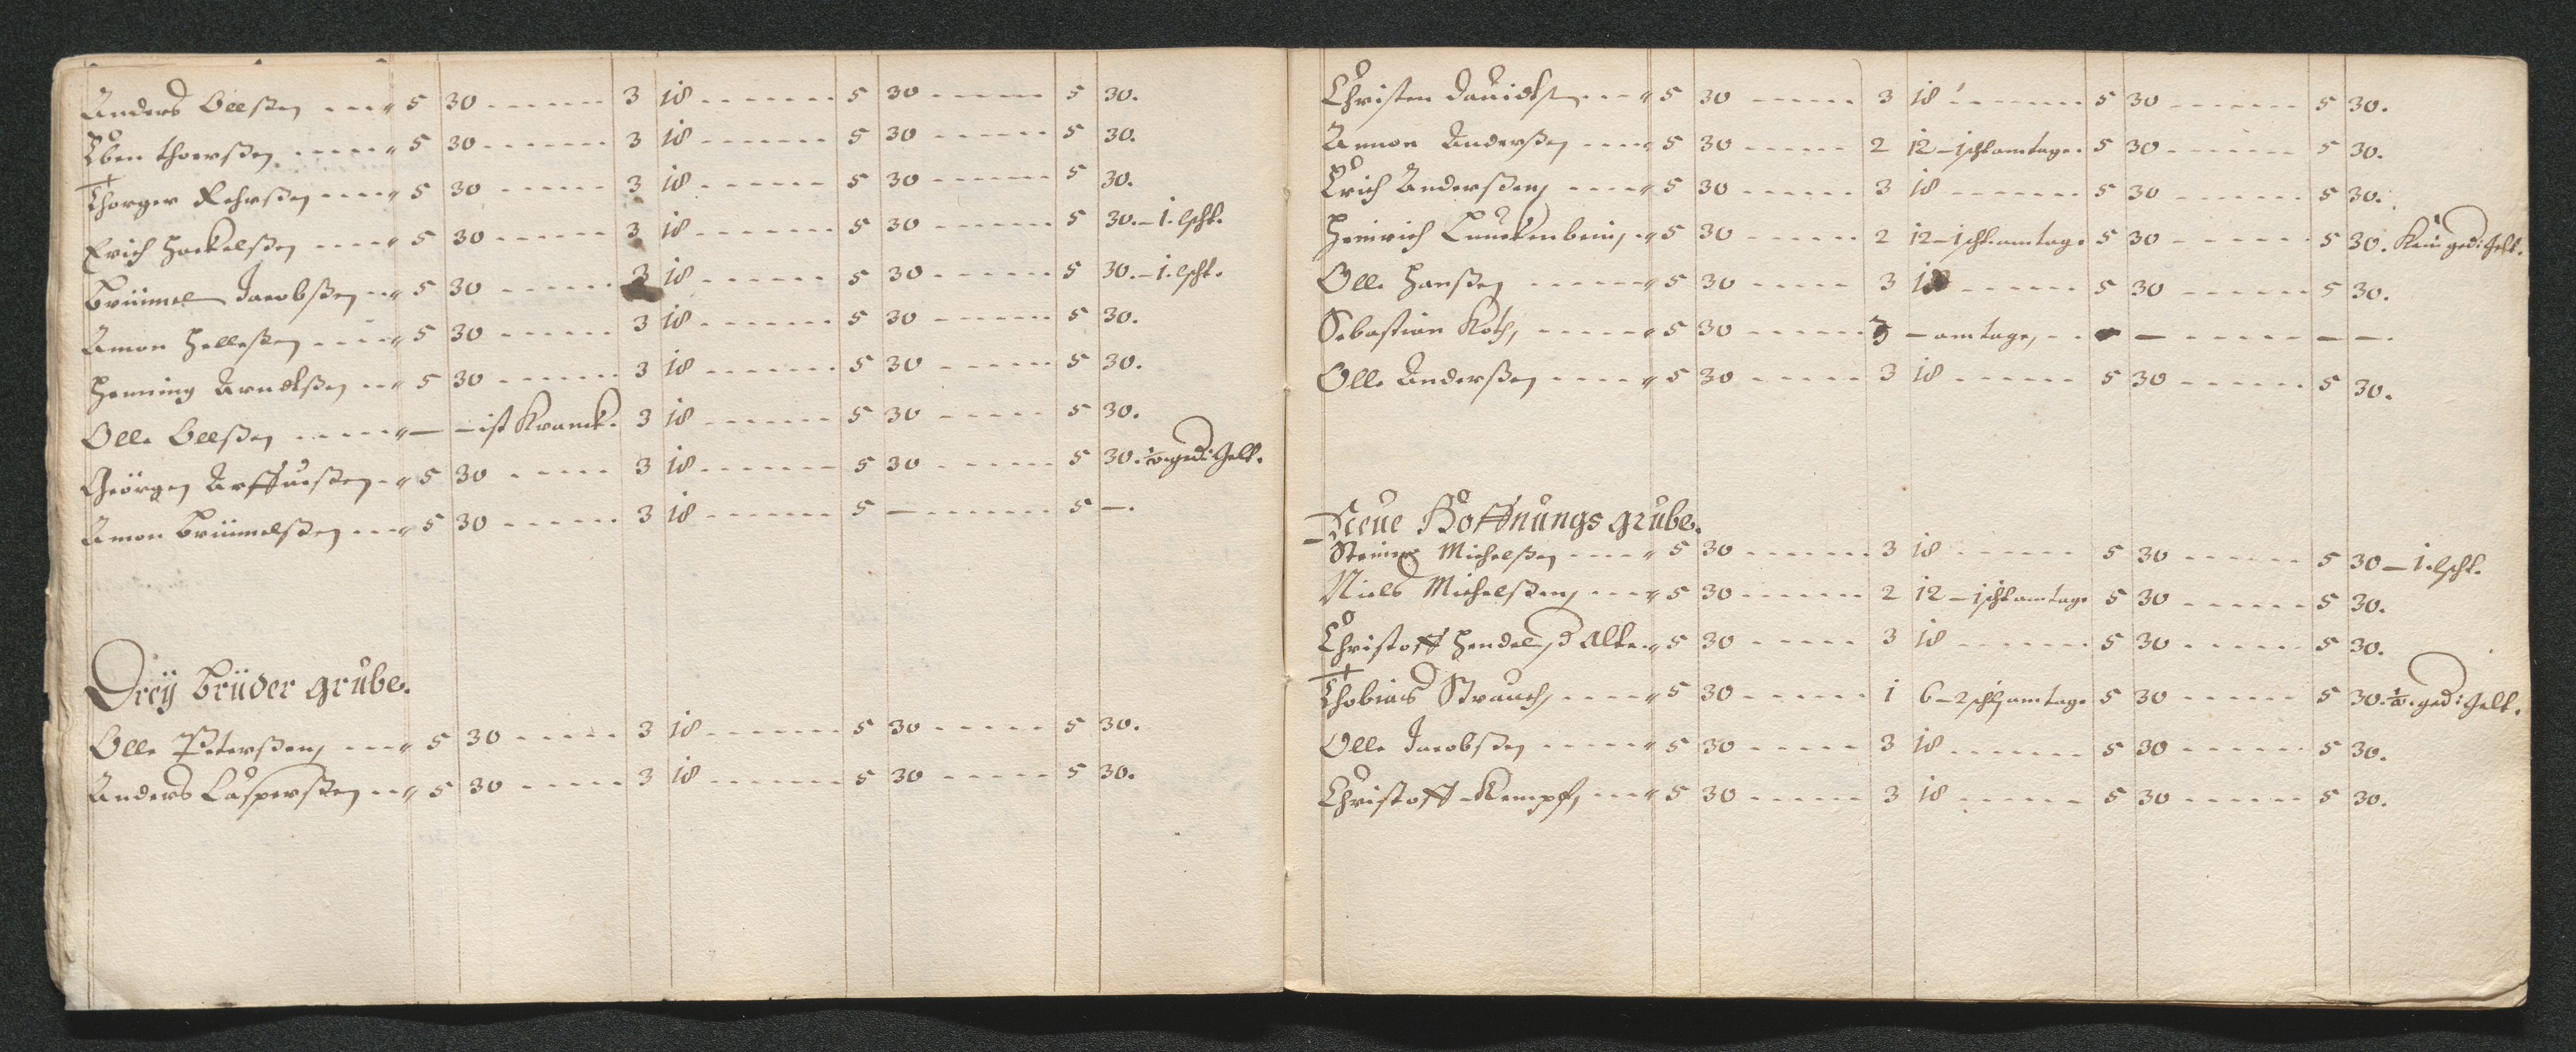 Anders Olßen ---- 5 30 ------- 3 18 ------- 5 30 ------ 5 30.
Eben Thorßen ----- 5 30 ------- 3 18 ------- 5 30 ------ 5 30.
Thorger Rehrßen ---- 5 30 ------ 3 18 ------ 5 30 ------ 5 30.
Erich Hackelßen ---- 5 30 ------ 3 18 ------ 5 30 ------ 5 30. – 1. lscht.
Brümel Jacobßen --- 5 30 ------ 3 18 ------ 5 30 ------ 5 30. – 1. lscht.
Amon Helleßen ---- 5 30 ------ 3 18 ------ 5 30 ------ 5 30.
Henning Arndtßen -- 5 30 ------ 3 18 ------ 5 30 ----- 5 30.
Olle Olßen ----- – – ist Kranck. 3 18 ------ 5 30 ----- 5 30.
Geörgen -- 5 30 ----- 3 18 ------ 5 30 ----- 5 30. gedi: Gelt.
Amon Brümelßen --- 5 30 ------ 3 18 ------ 5 – ------ 5 –.
Dreÿ Brüder grube.
Olle Peterßen, --- 5 30 ----- 3 18 ------ 5 30 ----- 5 30.
Anders Casperßen -- 5 30 ----- 3 18 ------ 5 30 ----- 5 30.
Christen Davidtß --- 5 30 ----- 3 18 ------ 5 30 ------ 5 30.
Ammon Anderßen ---- 5 30 ----- 2 12 – 1 scht amtage. 5 30 ------ 5 30.
Erich Anderßen, ---- 5 30 ----- 3 18 ------ 5 30 ------ 5 30.
Heinrich Lunckenbein, -- 5 30 ----- 2 12 – 1 scht. amtage 5 30 ------ 5 30. Kein gedi: Gelt.
Olle Hanßen ------ 5 30 ----- 3 18 ------ 5 30 ------ 5 30.
Sebastian Koth, ----- 5 30 ------ 3 – amtage, -- – – ------ – –.
Olle Anderßen ---- 5 30 ----- 3 18 ------ 5 30 ------ 5 30.
Neue Hoffnungs grube.
Steiner Michelßen ---- 5 30 ------ 3 18 ------ 5 30 ------ 5 30 – 1. lscht.
Niels Michelßen, --- 5 30 ------ 2 12 – 1 scht amtage 5 30 ------ 5 30.
Christoff Hendel, d Alte. 5 30 ----- 3 18 ------ 5 30 ----- 5 30.
Thobias Strauch, ---- 5 30 ------ 1 6 – 2 scht amtage 5 30 ------ 5 30. gedi: Gelt.
Olle Jacobßen ----- 5 30 ----- 3 18 ------ 5 30 ------ 5 30.
Christoff Kempf, --- 5 30 ----- 3 18 ------ 5 30 ------ 5 30.